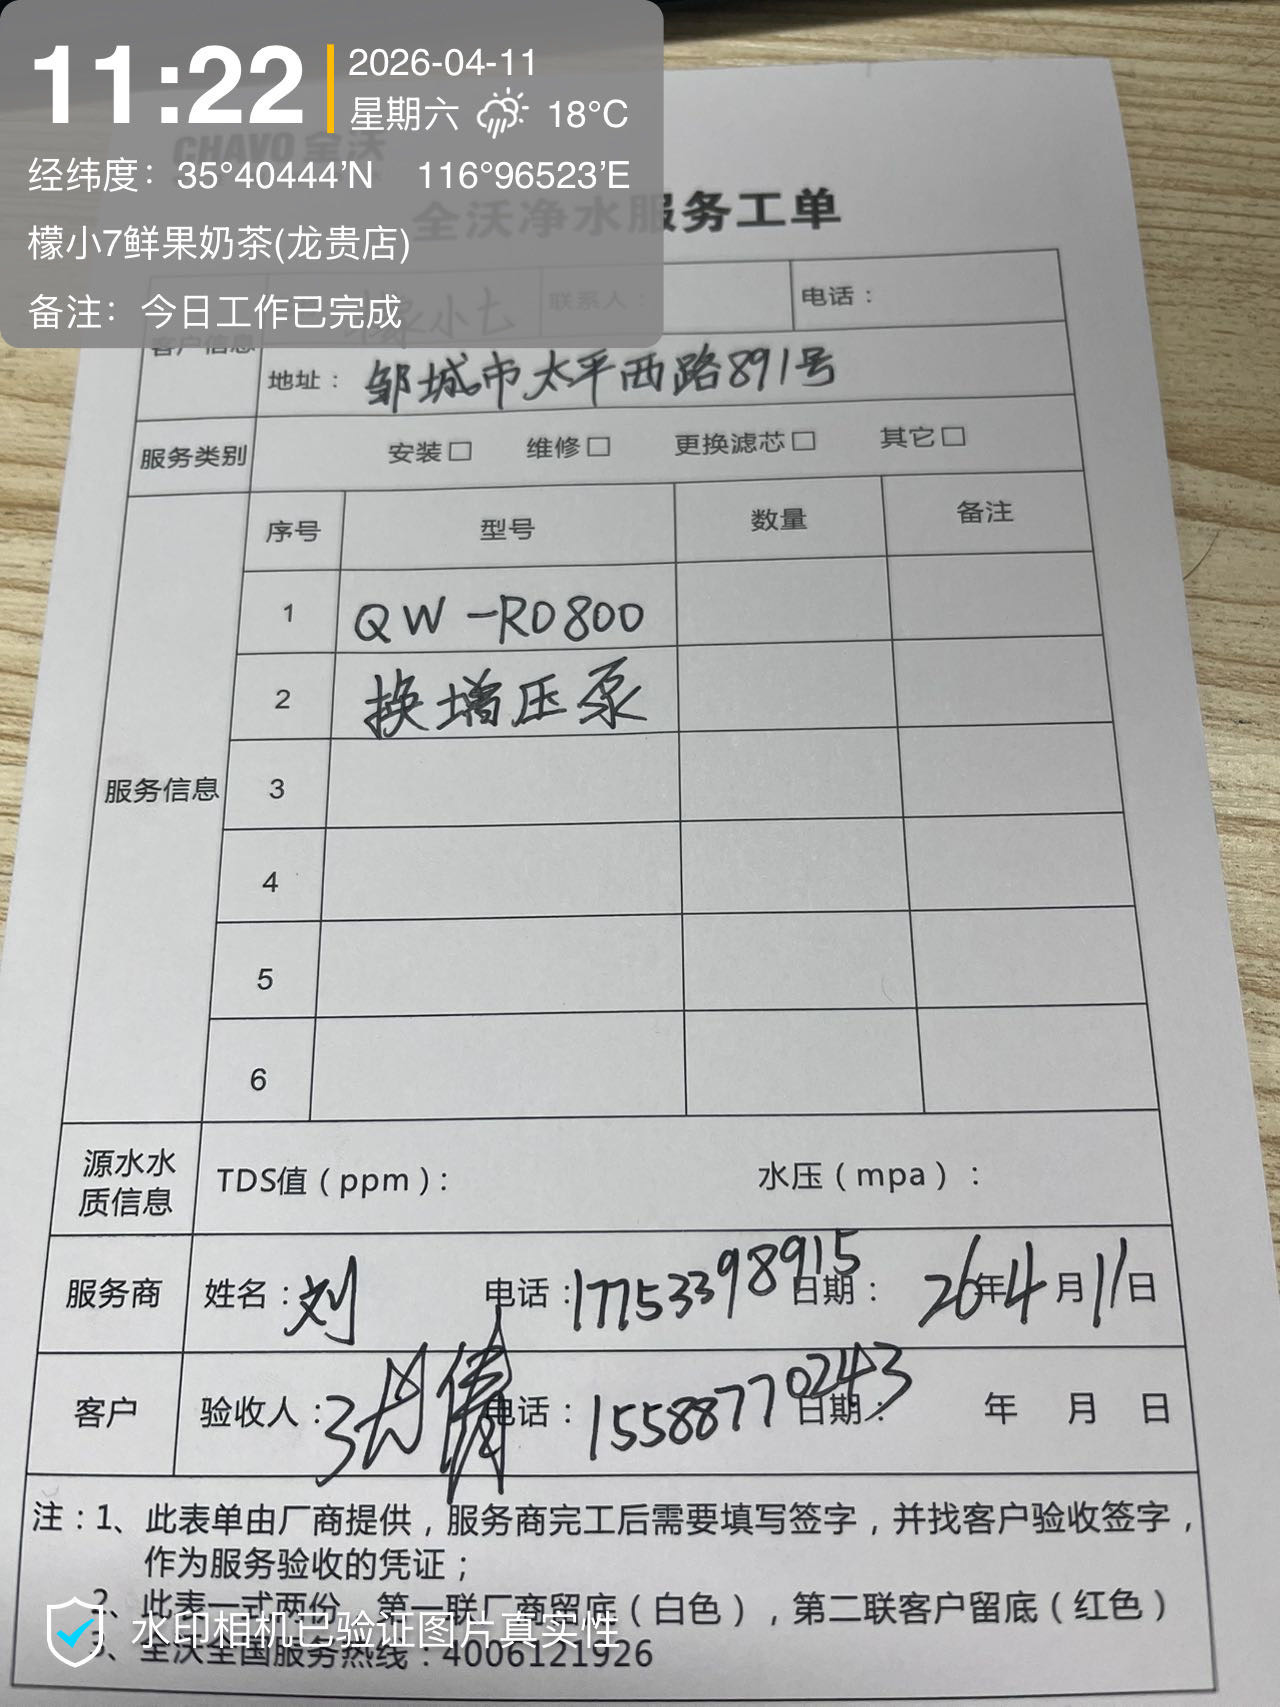 11:22
2026-04-11
星期六 18°C
CHAVO 全沃
经纬度：35°40444'N 116°96523'E
全沃净水服务工单
檬小7鲜果奶茶(龙贵店)
备注：今日工作已完成
檬小七 联系人： 电话：
客户信息
地址：邹城市太平西路891号
服务类别 安装□ 维修□ 更换滤芯□ 其它□
序号 型号 数量 备注
1 QW-RO800
2 换增压泵
服务信息
3
4
5
6
源水水质信息 TDS值（ppm）： 水压（mpa）：
服务商 姓名：刘 电话：17753398915 日期：26年4月11日
客户 验收人： 电话：15588770243 日期： 年 月 日
注：1、此表单由厂商提供，服务商完工后需要填写签字，并找客户验收签字，
作为服务验收的凭证；
2、此表一式两份，第一联厂商留底（白色），第二联客户留底（红色）
3、全沃全国服务热线：4006121926
水印相机已验证图片真实性